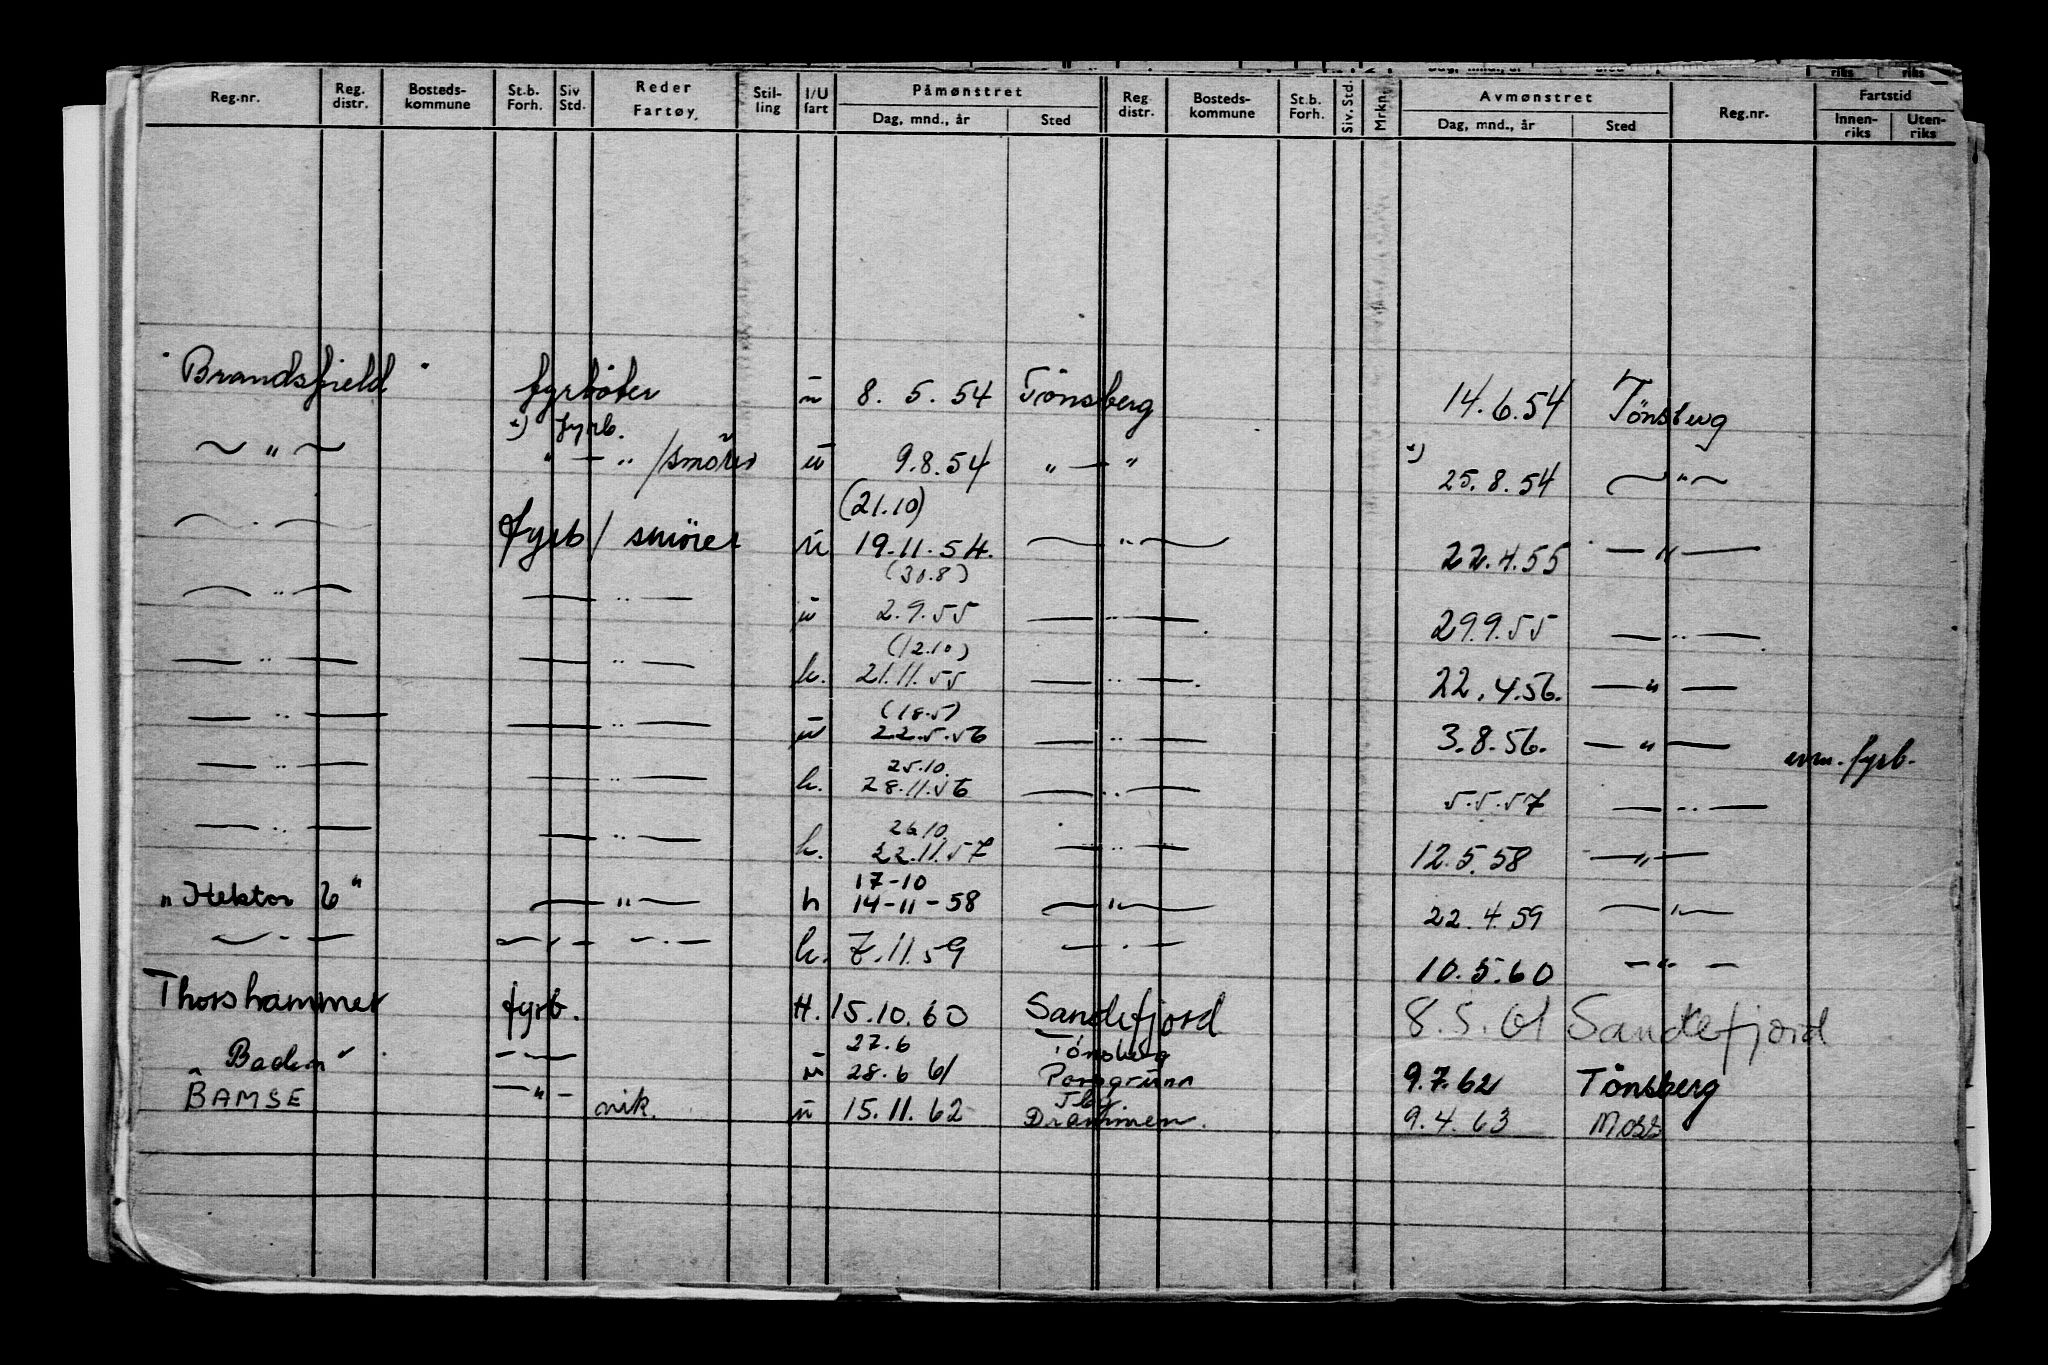 Reg.nr. Reg. distr. Bosteds- kommune St.b. Forh. Siv Std. Reder Fartøy Stil- ling I/U fart Påmønstret Dag, mnd., år Sted Reg distr. Bosteds- kommune St.b. Forh. Siv. Std. Mrkn. Avmønstret Dag, mnd., år Sted Reg.nr. Fartstid Innen- riks Uten- riks
"Brandsfield" fyrbøter ū 8. 5. 54 Tönsberg 14.6.54 Tönsberg
x) fyrb.
~ " ~ " — " /smörer ū 9.8.54 " — " x) 25.8.54 ~ " ~
(21.10)
~ . ~ fyrb / smörer ū 19.11.54. — " — 22.4.55 — " —
(30.8)
— " — — " — ū 2.9.55 — " — 29.9.55 — " —
(12.10)
— " — — " — h. 21.11.55 — " — 22.4.56. — " —
(18.5)
— " — — " — ū 22.5.56 — " — 3.8.56. — " — fyrb.
25.10
— " — — " — h. 28.11.56 — " — 5.5.57 — " —
26.10
— " — — " — h. 22.11.57 — " — 12.5.58 — " —
17-10
"Hektor 6" — " — h 14-11-58 — " — 22.4.59 — " —
— " — — " — — " — h. 7.11.59 — " — 10.5.60 — " —
Thorshammer fyrb. H. 15.10.60 Sandefjord 8.5.61 Sandefjord
27.6 Tönsberg
"Baden" — " — ū 28.6 61 Porsgrunn 9.7.62 Tönsberg
Tbg
BAMSE — " — vik. ū 15.11.62 Drammen. 9.4.63 Moss